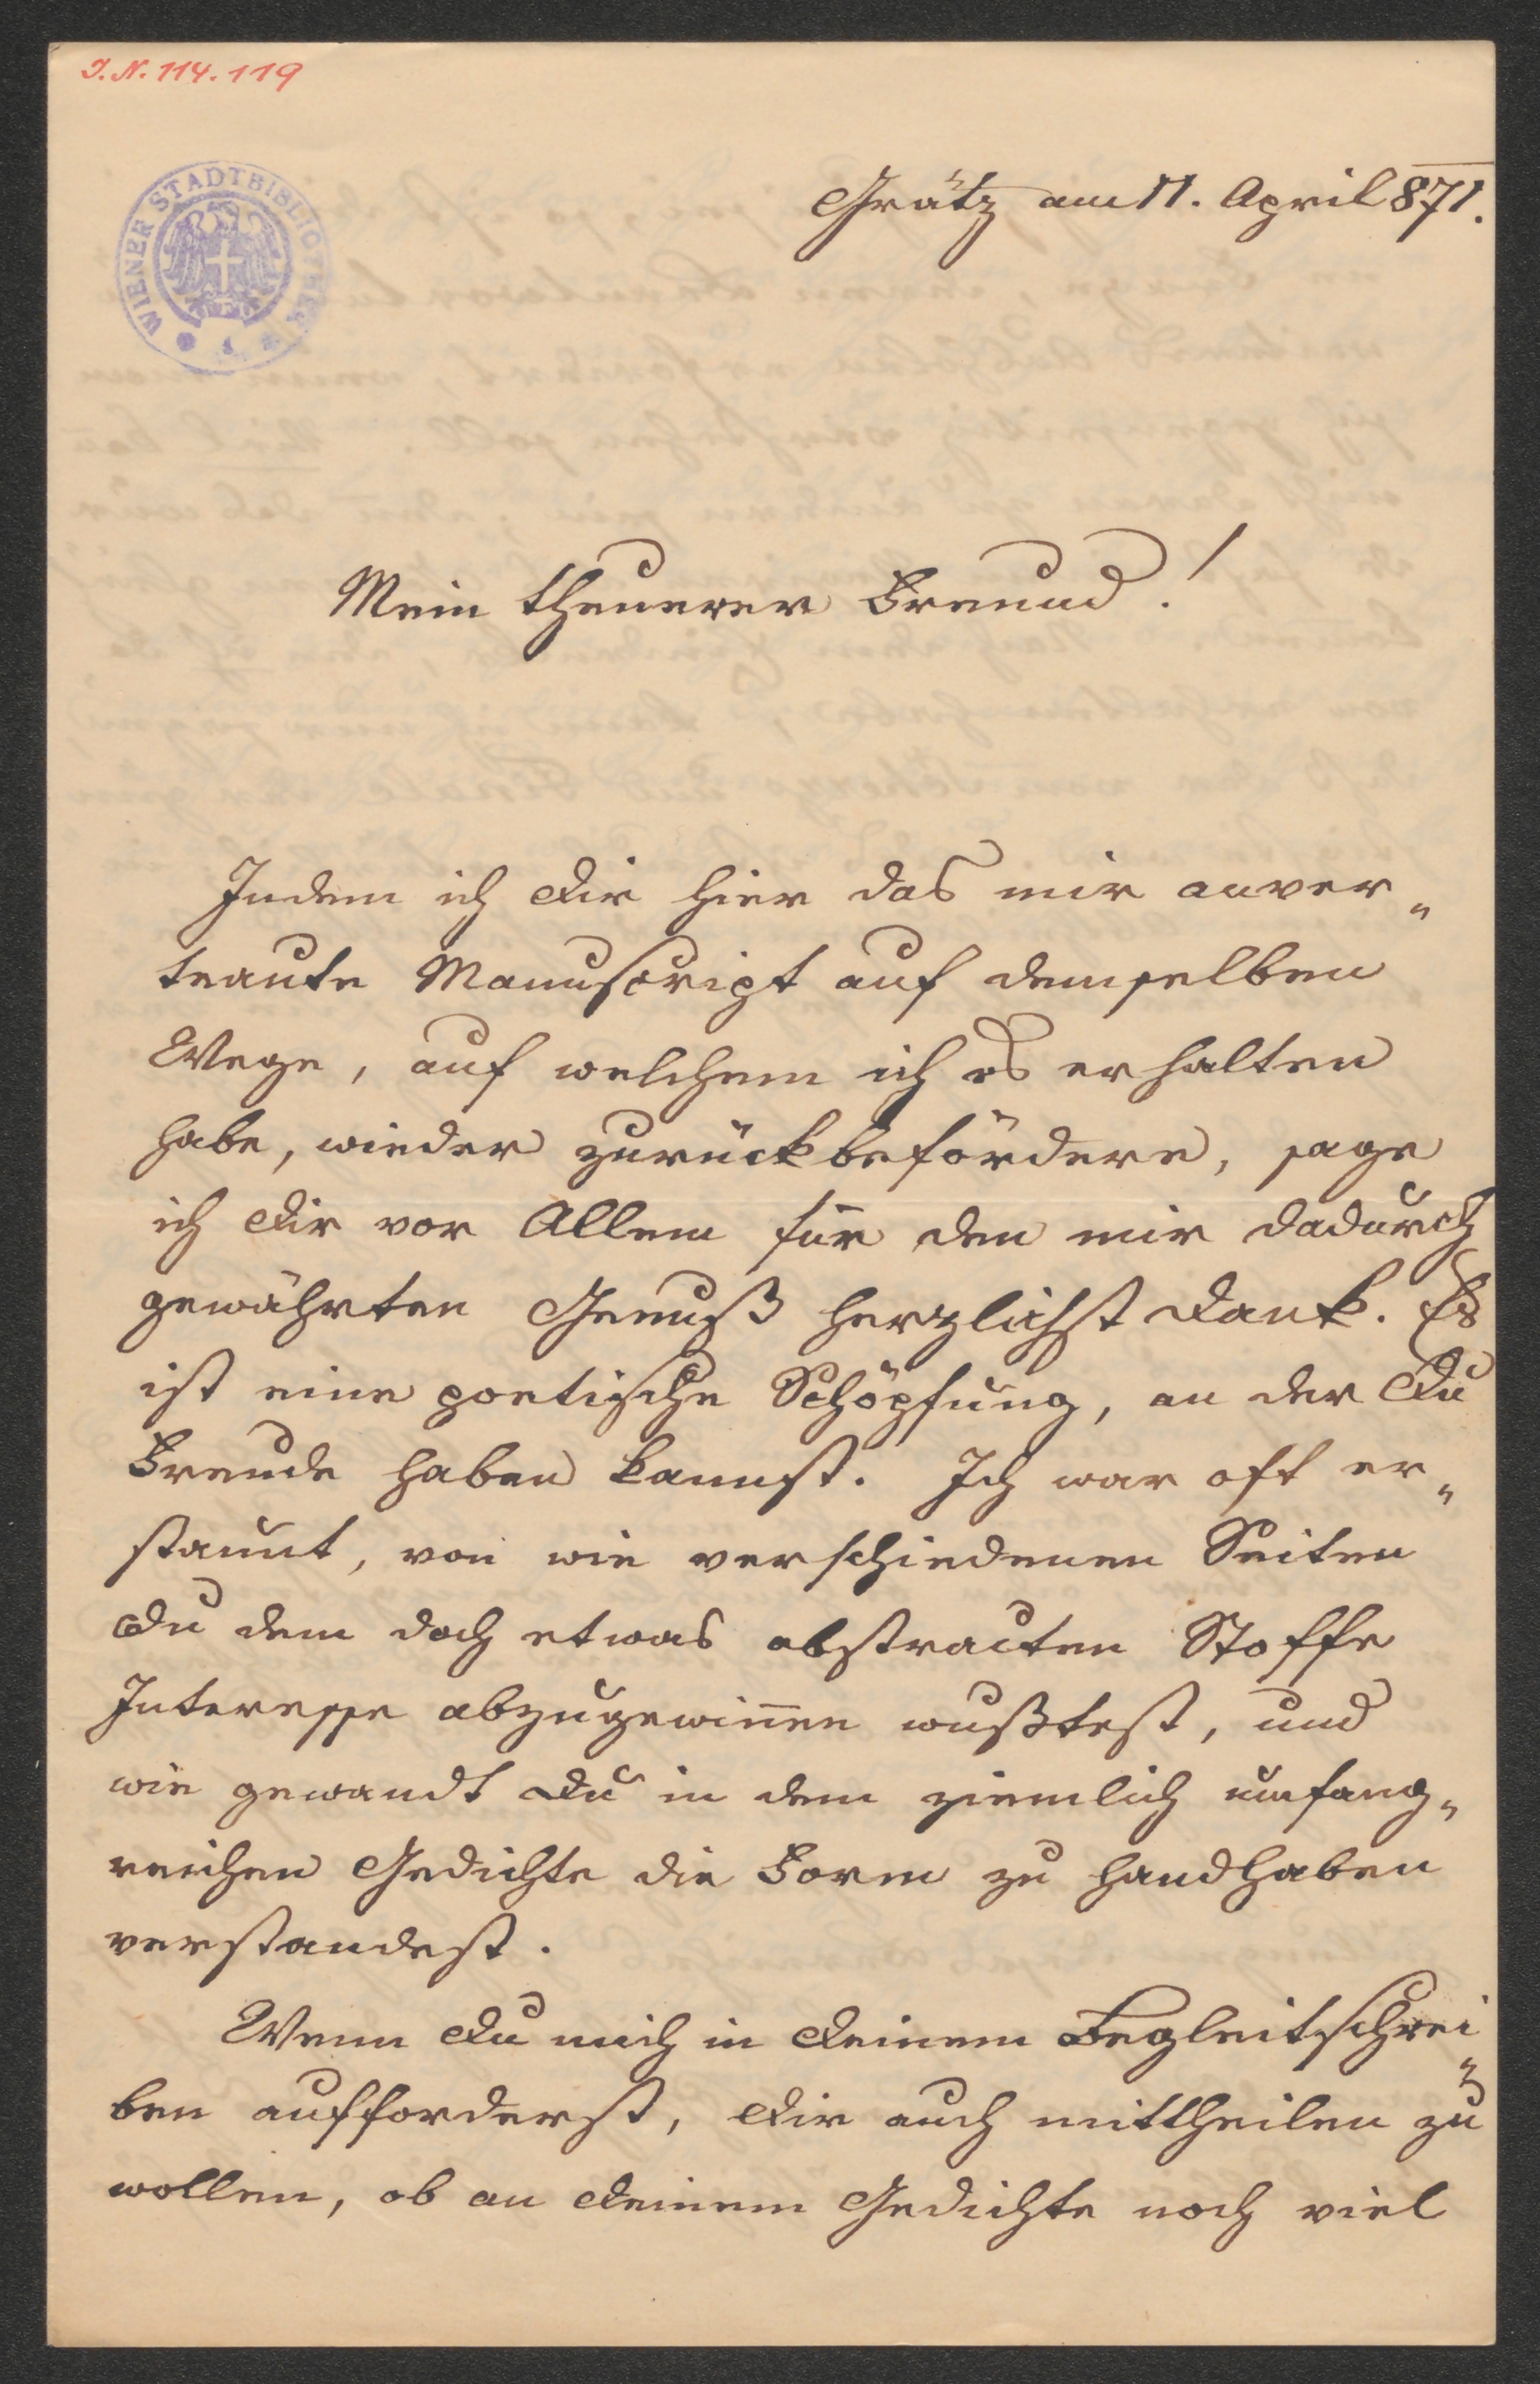 I. N. 114.119
WIENER STADTBIBLIOTHEK
Grätz am 11. April 871.
Mein theuerer Freund!
Indem ich Dir hier das mir anver„
traute Manuscript auf demselben
Wege, auf welchem ich es erhalten
habe, wieder zurückbefördere, sage
ich Dir vor Allem für den mir dadurch
gewährten Genuß herzlichst Dank. Es
ist eine poetische Schöpfung, an der Du
Freude haben kannst. Ich war oft er„
staunt, von wie verschiedenen Seiten
Du dem doch etwas abstracten Stoffe
Interesse abzugewinnen wußtest, und
wie gewandt Du in dem ziemlich umfang„
reichen Gedichte die Form zu handhaben
verstandest.
Wenn Du mich in Deinem Begleitschrei„
ben aufforderst, Dir auch mittheilen zu
wollen, ob an Deinem Gedichte noch viel